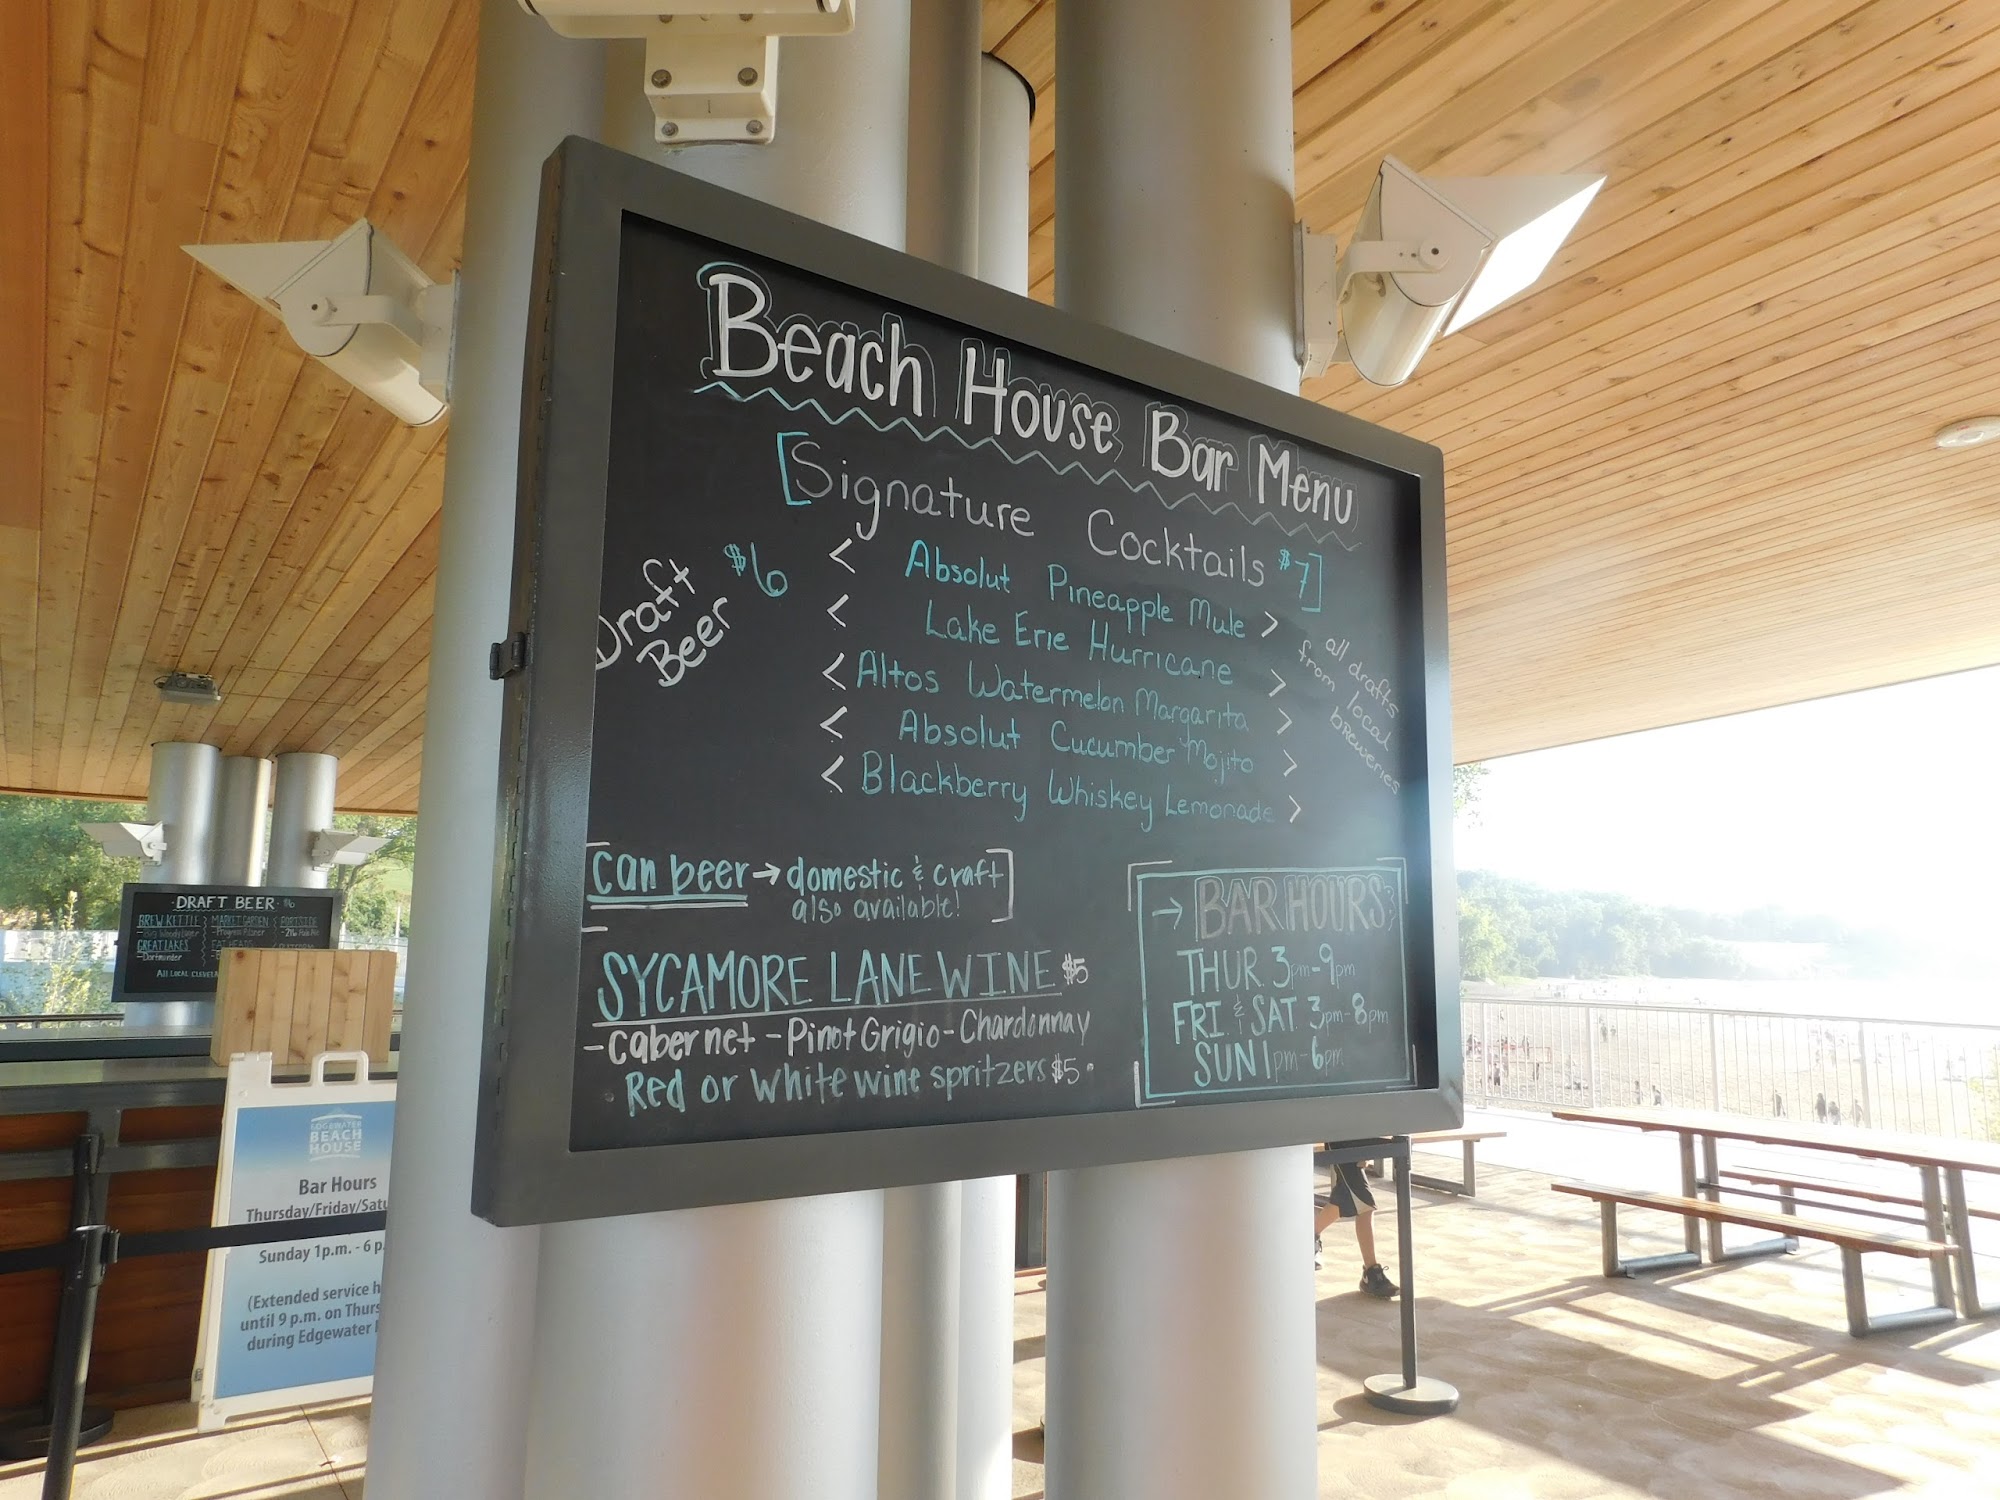 Beach House Bar Menu
[Signature Cocktails $7]
Draft Beer $6
< Absolut Pineapple Mule >
< Lake Erie Hurricane >
< Altos Watermelon Margarita >
< Absolut Cucumber Mojito >
< Blackberry Whiskey Lemonade >
all drafts
from local
breweries
[can beer → domestic & craft]
also available!
SYCAMORE LANE WINE $5
- Cabernet - Pinot Grigio - Chardonnay
· Red or White wine spritzers $5 ·
→ BAR HOURS
THUR. 3pm-9pm
FRI. & SAT. 3pm-8pm
SUN 1pm-6pm
DRAFT BEER · $6
BREW KETTLE
MARKET GARDEN
PORTSIDE
- Progress Pilsner
GREAT LAKES
FAT HEADS
- Dortmunder
ALL LOCAL CLEVELA
EDGEWATER
BEACH
HOUSE
Bar Hours
Thursday/Friday/Satu
Sunday 1p.m. - 6 p.
(Extended service h
until 9 p.m. on Thurs
during Edgewater